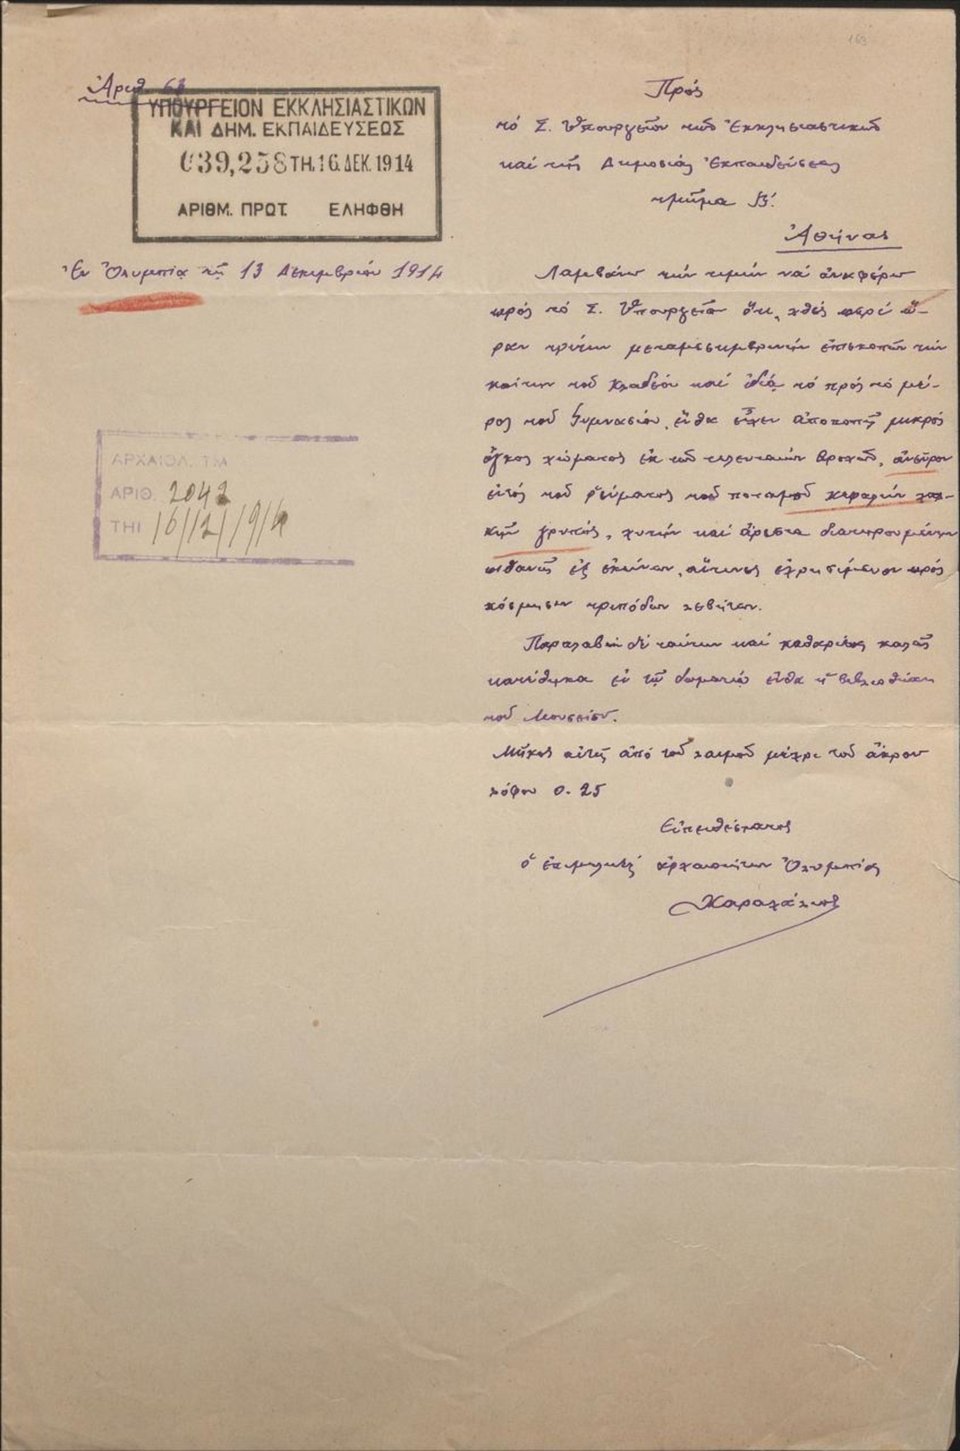 163
Ἀριθ. 63
ΥΠΟΥΡΓΕΙΟΝ ΕΚΚΛΗΣΙΑΣΤΙΚΩΝ
ΚΑΙ ΔΗΜ. ΕΚΠΑΙΔΕΥΣΕΩΣ
039,258 ΤΗ. 16 ΔΕΚ. 1914
ΑΡΙΘΜ. ΠΡΩΤ. ΕΛΗΦΘΗ
Ἐν Ὀλυμπίᾳ τῇ 13 Δεκεμβρίου 1914
ΑΡΧΑΙΟΛ. ΤΜ
ΑΡΙΘ. 2042
ΤΗΙ 16/12/1914
Πρός
τό Σ. Ὑπουργεῖον τῶν Ἐκκλησιαστικῶν
καί τῆς Δημοσίας Ἐκπαιδεύσεως
τμῆμα Β΄.
Ἀθήνας
Λαμβάνω τήν τιμήν νά ἀναφέρω
πρός τό Σ. Ὑπουργεῖον ὅτι, χθές περί ὥ-
ραν τρίτην μεταμεσημβρινήν ἐπισκοπῶν τήν
κοίτην τοῦ Κλαδέου καί ἰδίᾳ τό πρός τό μέ-
ρος τοῦ Γυμνασίου, ἔνθα εἶχεν ἀποκοπῆ μικρός
ὄγκος χώματος ἐκ τῶν τελευταίων βροχῶν, ἀνεῦρον
ἐντός τοῦ ῥεύματος τοῦ ποταμοῦ κεφαλήν χαλ-
κῆν γρυπός, χυτήν καί ἄριστα διατηρουμένην
πιθανῶς ἐξ ἐκείνων, αἵτινες ἐχρησίμευον πρός
κόσμησιν τριπόδων λεβήτων.
Παραλαβών δέ ταύτην καί καθαρίσας καλῶς
κατέθηκα ἐν τῷ δωματίῳ ἔνθα ἡ βιβλιοθήκη
τοῦ Μουσείου.
Μῆκος αὐτῆς ἀπό τοῦ λαιμοῦ μέχρι τοῦ ἄκρου
λόφου 0.25
Εὐπειθέστατος
ὁ ἐπιμελητής ἀρχαιοτήτων Ὀλυμπίας